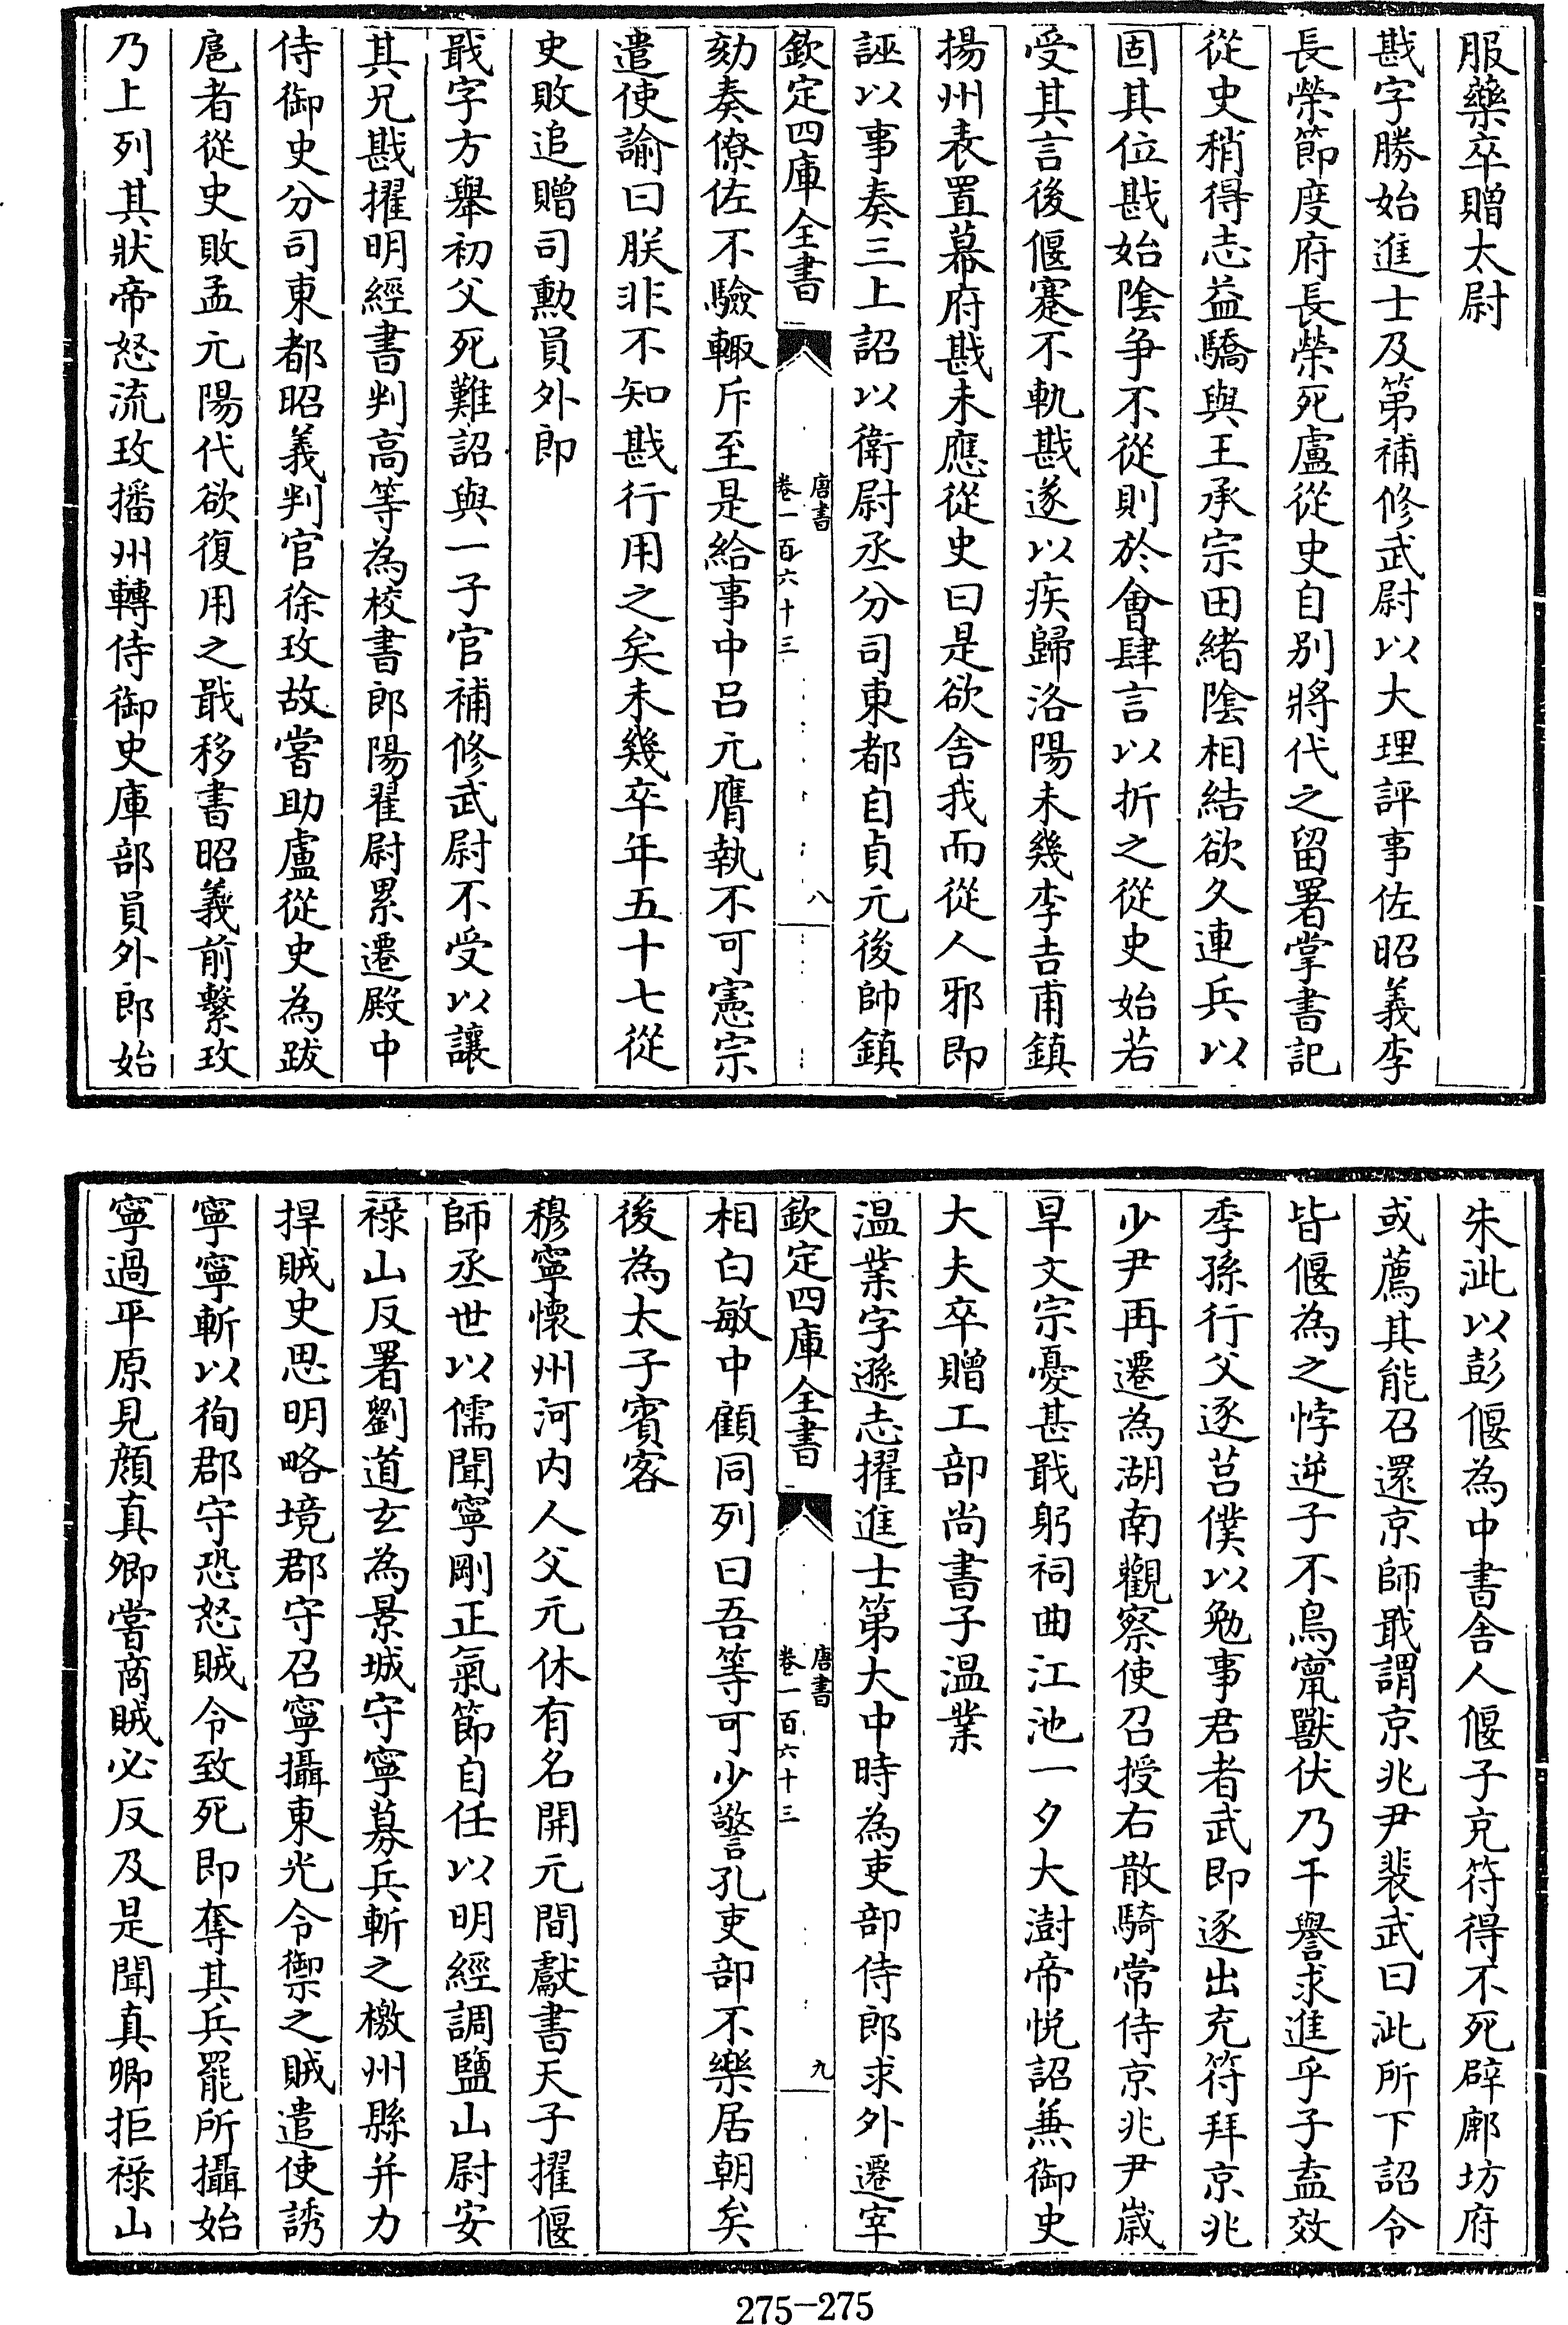 服藥卒贈太尉
戡字勝始進士及第補修武尉以大理評事佐昭義李
長榮節度府長榮死盧從史自别將代之留署掌書記
從史稍得志益驕與王承宗田緒隂相結欲久連兵以
固其位戡始隂争不從則於會肆言以折之從史始若
受其言後偃蹇不軌戡遂以疾歸洛陽未幾李吉甫鎮
揚州表置幕府戡未應從史曰是欲舍我而從人邪即
誣以事奏三上詔以衛尉丞分司東都自貞元後帥鎮
欽定四庫全書
唐書
卷一百六十三
八
劾奏僚佐不驗輒斥至是給事中吕元膺執不可憲宗
遣使諭曰朕非不知戡行用之矣未幾卒年五十七從
史敗追贈司勲員外郎
戢字方舉初父死難詔與一子官補修武尉不受以讓
其兄戡擢明經書判高等為校書郎陽翟尉累遷殿中
侍御史分司東都昭義判官徐玫故嘗助盧從史為跋
扈者從史敗孟元陽代欲復用之戢移書昭義前繫玫
乃上列其狀帝怒流玫播州轉侍御史庫部員外郎始
朱泚以彭偃為中書舍人偃子充符得不死辟鄜坊府
或薦其能召還京師戢謂京兆尹裴武曰泚所下詔令
皆偃為之悖逆子不鳥竄獸伏乃干譽求進乎子盍效
季孫行父逐莒僕以勉事君者武即逐出充符拜京兆
少尹再遷為湖南觀察使召授右散騎常侍京兆尹嵗
旱文宗憂甚戢躬祠曲江池一夕大澍帝悦詔兼御史
大夫卒贈工部尚書子温業
温業字遜志擢進士第大中時為吏部侍郎求外遷宰
欽定四庫全書
唐書
卷一百六十三
九
相白敏中顧同列曰吾等可少警孔吏部不樂居朝矣
後為太子賓客
穆寧懷州河内人父元休有名開元間獻書天子擢偃
師丞世以儒聞寧剛正氣節自任以明經調鹽山尉安
禄山反署劉道玄為景城守寧募兵斬之檄州縣并力
捍賊史思明略境郡守召寧攝東光令禦之賊遣使誘
寧寧斬以徇郡守恐怒賊令致死即奪其兵罷所攝始
寧過平原見顔真卿嘗商賊必反及是聞真卿拒禄山
275—275